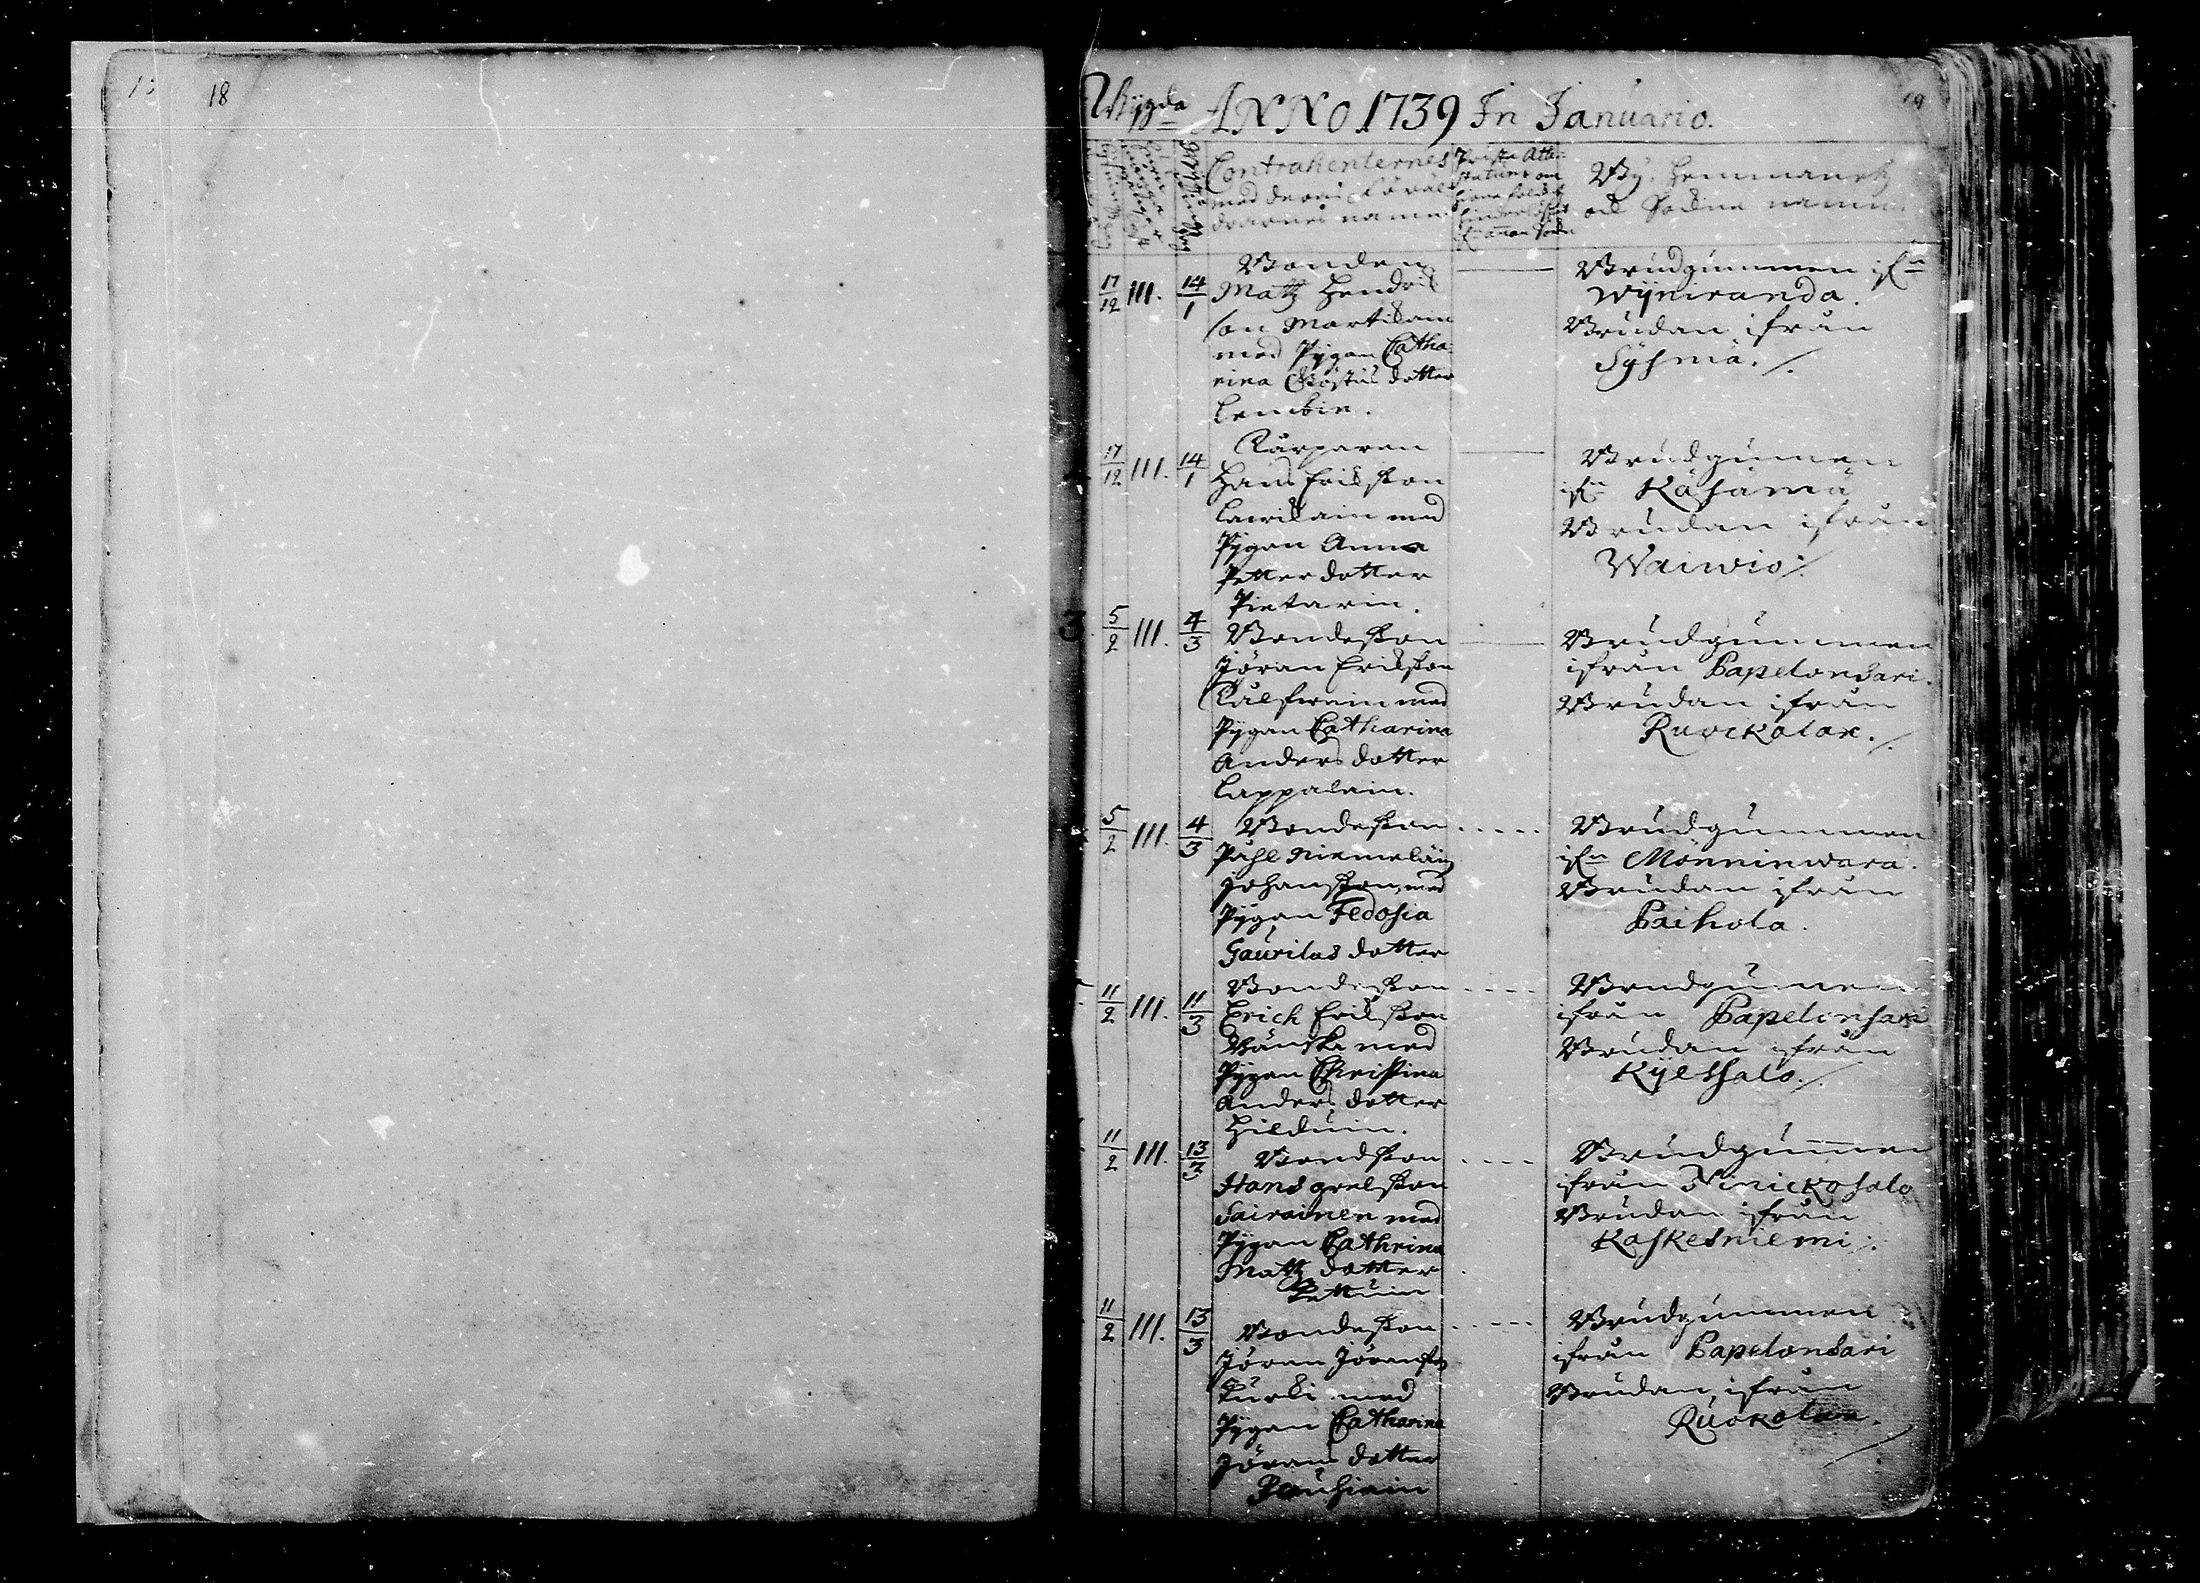 18
19
Wigda ANNO 1739 In Januario.
Contrahenternes
med deras Föräl
drarnes namn
Bÿ, Hemmanetz
och Sochne namn
17/12 III. 14/1
Bonden
Matz Hendrich
son Martikain
med Pÿgan Catha-
rina Göstas dotter
Lembin.
Brudgummen ifn
Wÿniranda.
Brudan ifrån
Sÿsmä./.
17/12 III. 14/1
Torparen
Hans Erichson
Laurikain med
Pÿgan Anna
Petter dotter
Pietarin.
Brudgumen
ifn Käsämä
Brudan ifrån
Waiwio/.
3. 5/2 III. 4/3
Bondeson
Jöran Erichson
med
Pÿgan Catharina
Anders dotter
Lappalain.
Brudgummen
ifrån Papelonsari.
Brudan ifrån
Ruockolax./.
5/2 III. 4/3
Bondeson
Påhl Niemeläin
Johanson, med
Pÿgan Fedosia
Gaurilas dotter
Brudgummen
ifn Mönninwara.
Brudan ifrån
Paihola.
11/2 III. 11/3
Bondeson
Erich Erichson
Vänskä med
Pÿgan Christina
Anders dotter
Hilduin.
Brudgumen
ifrån Papelonsari
Brudan ifrån
Kÿlssalo./.
11/2 III. 13/3
Bondson
Hans Grelson
Sairainen med
Pÿgan Cathrina
Matz dotter
Pettuin
Brudgummen
ifrån Ninickosalo
Brudan ifrån
Kaskesniemi/.
11/2 III. 13/3
Bondeson
Jöran Jöranson
Turki med
Pÿgan Catharina
Jörans dotter
Brudgummen
ifrån Papelonsari
Brudan, ifrån
Ruokolax.